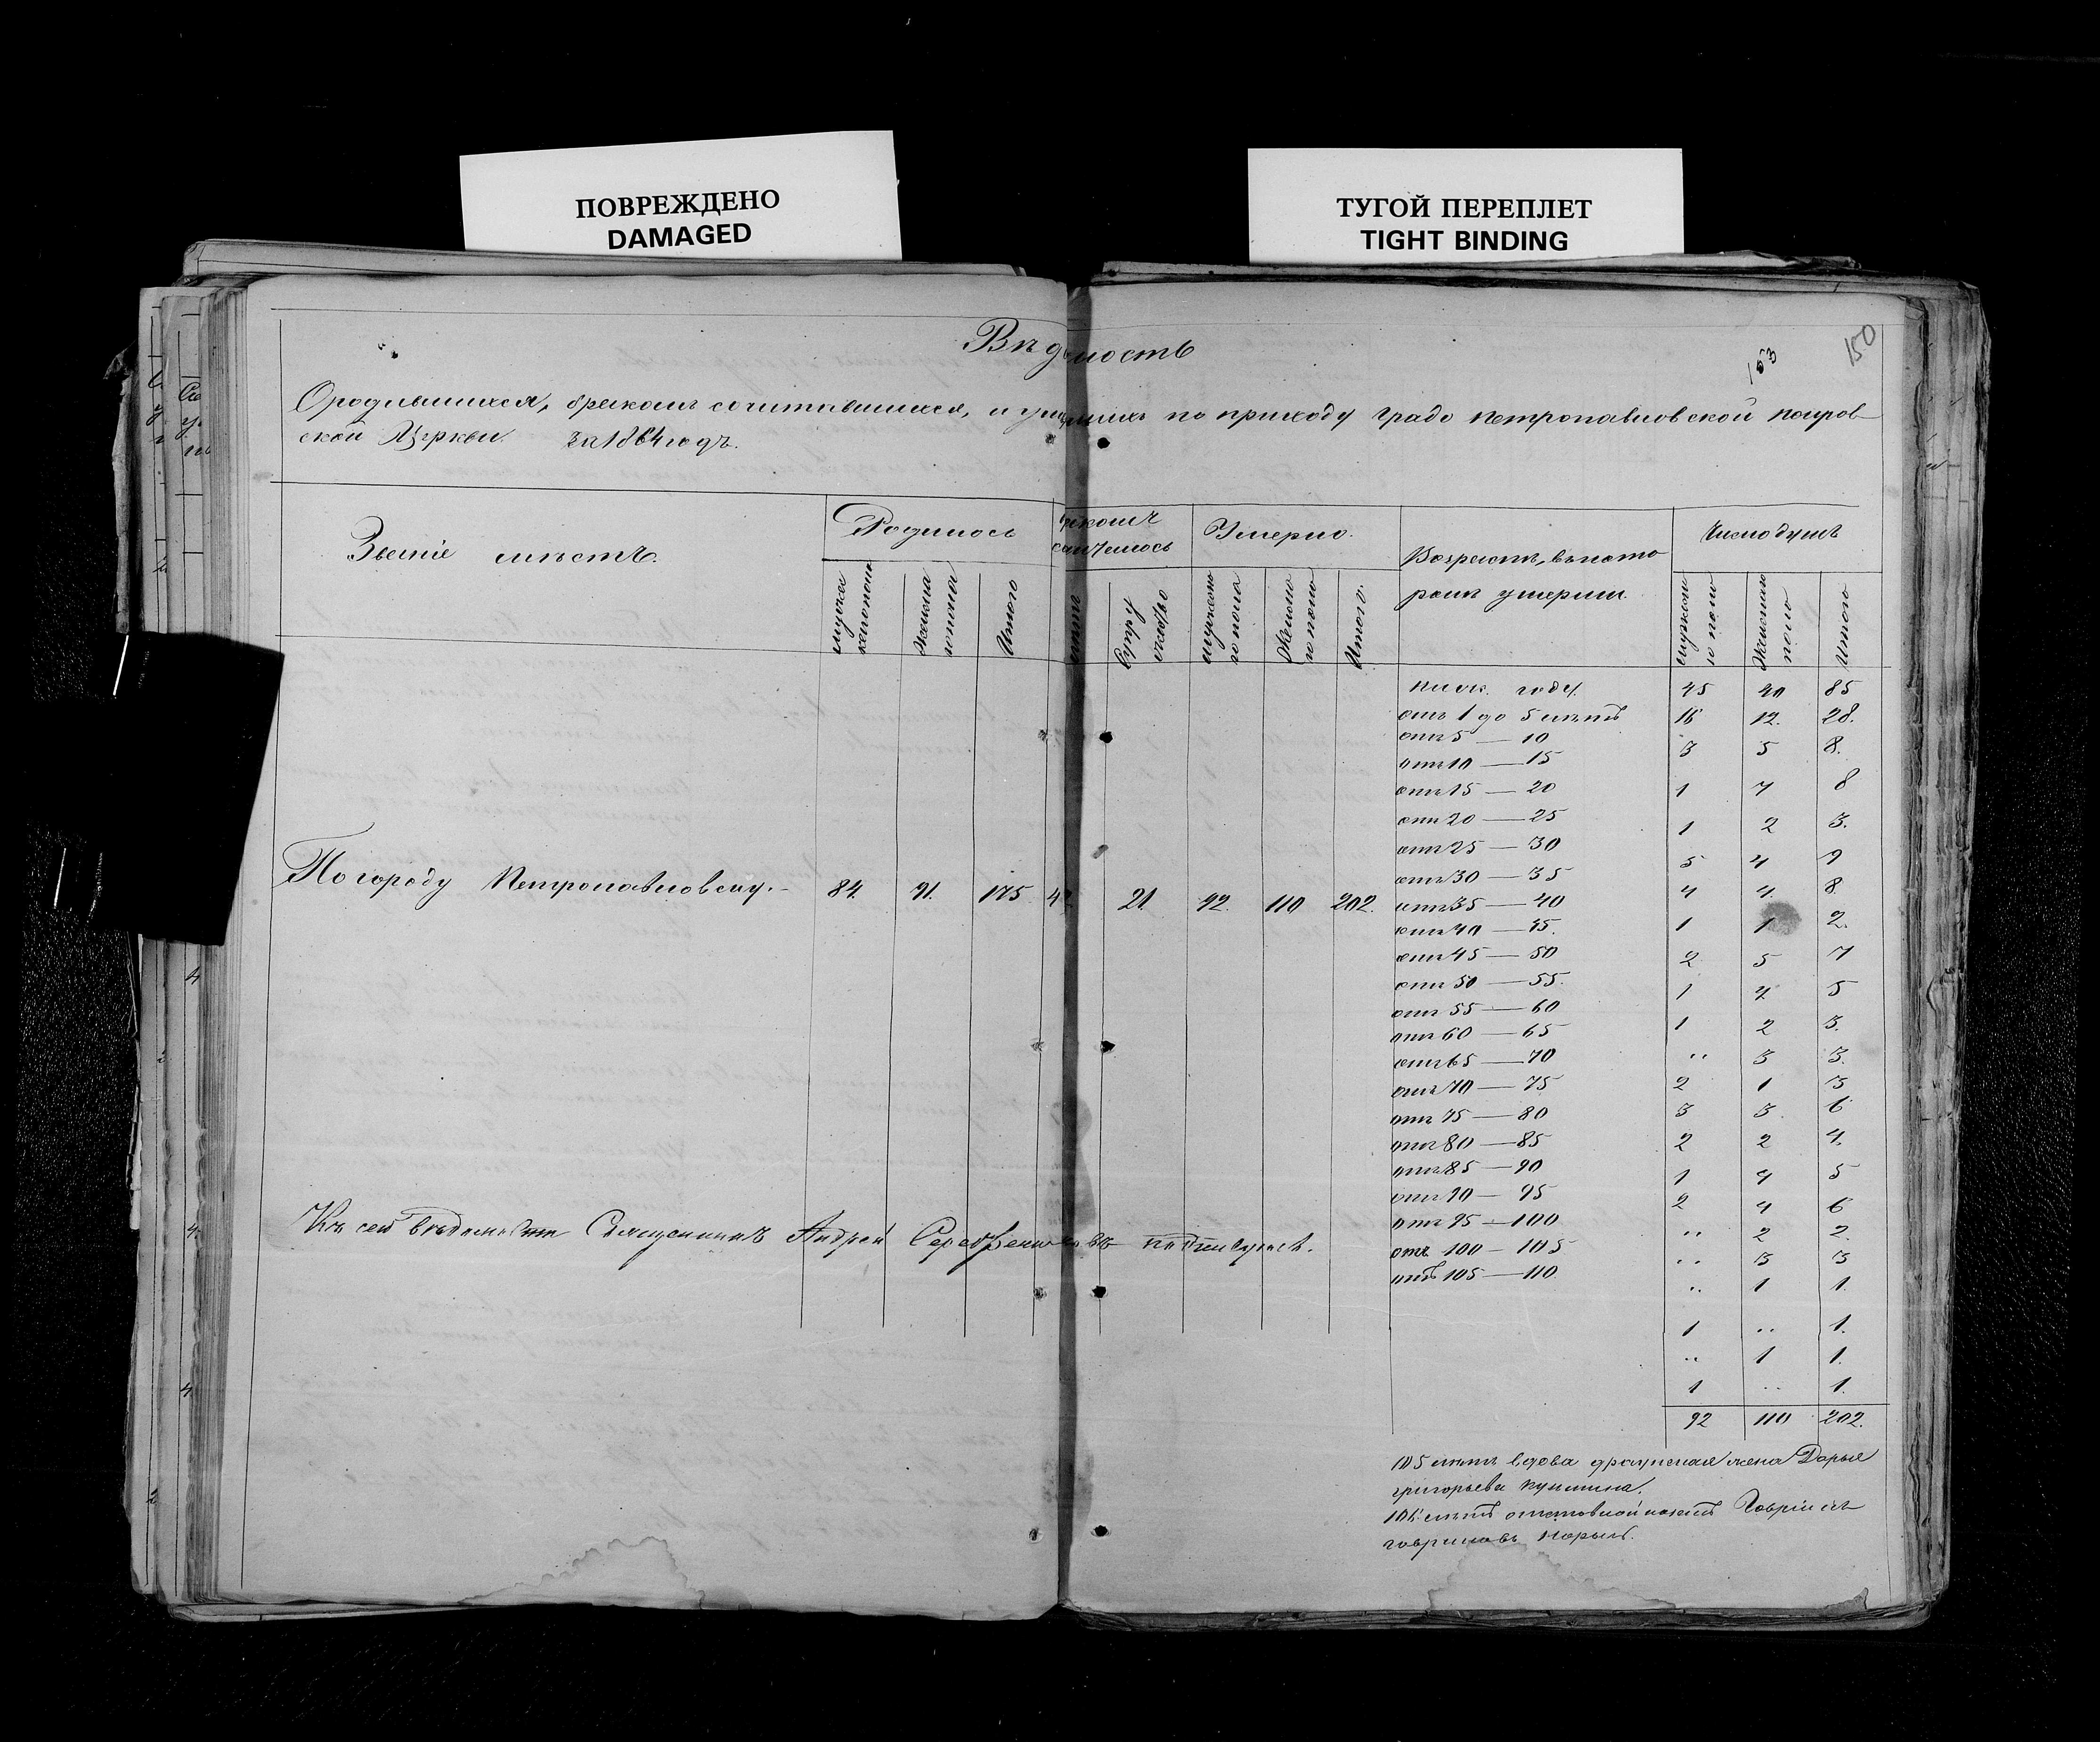 ПОВРЕЖДЕНО
DAMAGED
ТУГОЙ ПЕРЕПЛЕТ
TIGHT BINDING
150
153
Вѣдомость
О родившихся, бракомъ сочитавшихся, и умершихъ по приходу градо Петропавловской покров
ской Церкви за 1864 годъ.
Званіе мѣстъ.
Родилось
бракомъ сочеталось
Умерло.
Возрастъ, въ кото
ромъ умерли
Число душъ
мужескаго пола
женскаго пола
Итого
лѣтъ
Супружество
мужескаго пола
женскаго пола
Итого.
мужескаго пола
женскаго пола
Итого
По городу Петропавловску. 84. 91. 175 42 21. 92. 110 202.
ниж. году. 45 40 85
отъ 1 до 5 лѣтъ 16 12. 28.
отъ 5 — 10 3 5 8.
отъ 10 — 15
отъ 15 — 20 1 7 8
отъ 20 — 25 1 2 3.
отъ 25 — 30 5 4 9
отъ 30 — 35 4 4. 8
отъ 35 — 40
отъ 40 — 45. 1 1 2.
отъ 45 — 50 2 5 7
отъ 50 — 55. 1 4 5
отъ 55 — 60
отъ 60 — 65 1 2 3.
отъ 65 — 70 „ 3 3.
отъ 70 — 75 2 1 3
отъ 75 — 80 3 3. 6
отъ 80 — 85 2 2 4.
отъ 85 — 90 1 4 5
отъ 90 — 95 2 4 6
отъ 95 — 100 „ 2 2.
отъ 100 — 105 „ 3 3
отъ 105 — 110 „ 1 1.
1 „ 1.
„ 1 1.
1 „ 1.
92 110 202.
Къ сей вѣдомости Священникъ Андрей Серебренниковъ подписуюсь.
105 лѣтъ вдова жена Дарья
григорьева
106 лѣтъ отставной Гавріилъ
гавриловъ